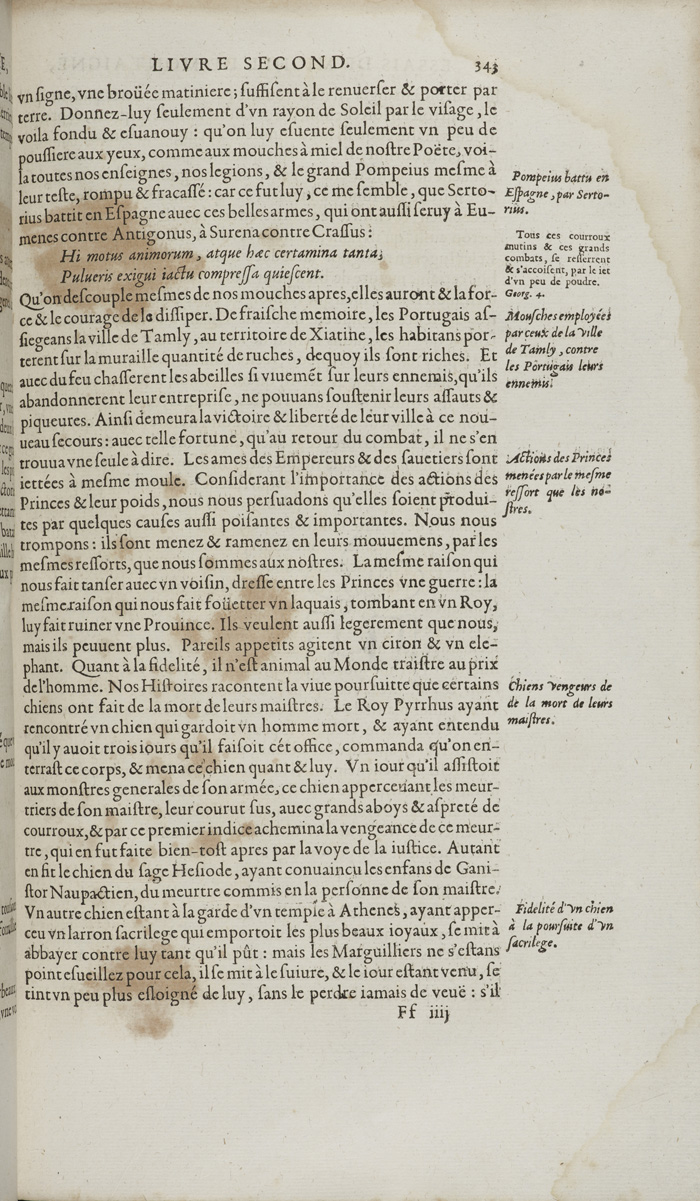 LIVRE SECOND. 343
vn ſigne, vne broüée matiniere; ſuffiſent à le renuerſer & porter par
terre. Donnez-luy ſeulement d'vn rayon de Soleil par le viſage, le
voila fondu & eſuanouy : qu'on luy eſuente ſeulement vn peu de
pouſſiere aux yeux, comme aux mouches à miel de noſtre Poëte, voi-
la toutes nos enſeignes, nos legions, & le grand Pompeius meſme à
leur teſte, rompu & fracaſſé : car ce fut luy, ce me ſemble, que Serto-
rius battit en Eſpagne auec ces belles armes, qui ont auſſi ſeruy à Eu-
menes contre Antigonus, à Surena contre Craſſus :
Hi motus animorum, atque hæc certamina tanta,
Pulueris exigui iactu compreſſa quieſcent.
Qu'on deſcouple meſmes de nos mouches apres, elles auront & la for-
ce & le courage de le diſſiper. De fraiſche memoire, les Portugais aſ-
ſiegeans la ville de Tamly, au territoire de Xiatine, les habitans por-
terent ſur la muraille quantité de ruches, dequoy ils ſont riches. Et
auec du feu chaſſerent les abeilles ſi viuemẽt ſur leurs ennemis, qu'ils
abandonnerent leur entrepriſe, ne pouuans ſouſtenir leurs aſſauts &
piqueures. Ainſi demeura la victoire & liberté de leur ville à ce nou-
ueau ſecours : auec telle fortune, qu'au retour du combat, il ne s'en
trouua vne ſeule à dire. Les ames des Empereurs & des ſauetiers ſont
iettées à meſme moule. Conſiderant l'importance des actions des
Princes & leur poids, nous nous perſuadons qu'elles ſoient produi-
tes par quelques cauſes auſſi poiſantes & importantes. Nous nous
trompons : ils ſont menez & ramenez en leurs mouuemens, par les
meſmes reſſorts, que nous ſommes aux noſtres. La meſme raiſon qui
nous fait tanſer auec vn voiſin, dreſſe entre les Princes vne guerre : la
meſme raiſon qui nous fait foüetter vn laquais, tombant en vn Roy,
luy fait ruiner vne Prouince. Ils veulent auſſi legerement que nous,
mais ils peuuent plus. Pareils appetits agitent vn ciron & vn ele-
phant. Quant à la fidelité, il n'eſt animal au Monde traiſtre au prix
de l'homme. Nos Hiſtoires racontent la viue pourſuitte que certains
chiens ont fait de la mort de leurs maiſtres. Le Roy Pyrrhus ayant
rencontré vn chien qui gardoit vn homme mort, & ayant entendu
qu'il y auoit trois iours qu'il faiſoit cét office, commanda qu'on en-
terraſt ce corps, & mena ce chien quant & luy. Vn iour qu'il aſſiſtoit
aux monſtres generales de ſon armée, ce chien apperceuant les meur-
triers de ſon maiſtre, leur courut ſus, auec grands aboys & aſpreté de
courroux, & par ce premier indice achemina la vengeance de ce meur-
tre, qui en fut faite bien-toſt apres par la voye de la iuſtice. Autant
en fit le chien du ſage Heſiode, ayant conuaincu les enfans de Gani-
ſtor Naupactien, du meurtre commis en la perſonne de ſon maiſtre.
Vn autre chien eſtant à la garde d'vn temple à Athenes, ayant apper-
ceu vn larron ſacrilege qui emportoit les plus beaux ioyaux, ſe mit à
abbayer contre luy tant qu'il pût : mais les Marguilliers ne s'eſtans
point eſueillez pour cela, il ſe mit à le ſuiure, & le iour eſtant venu, ſe
tint vn peu plus eſloigné de luy, ſans le perdre iamais de veuë : s'il
Ff iiij
Pompeius battu en
Eſpagne, par Serto-
rius.
Tous ces courroux
mutins & ces grands
combats, ſe reſſerrent
& s'accoiſent, par le iet
d'vn peu de poudre.
Georg. 4.
Mouſches employées
par ceux de la ville
de Tamly, contre
les Portugais leurs
ennemis.
Actions des Princes
menées par le meſme
reſſort que les no-
ſtres.
Chiens vengeurs de
de la mort de leurs
maiſtres.
Fidelité d'vn chien
à la pourſuite d'vn
ſacrilege.